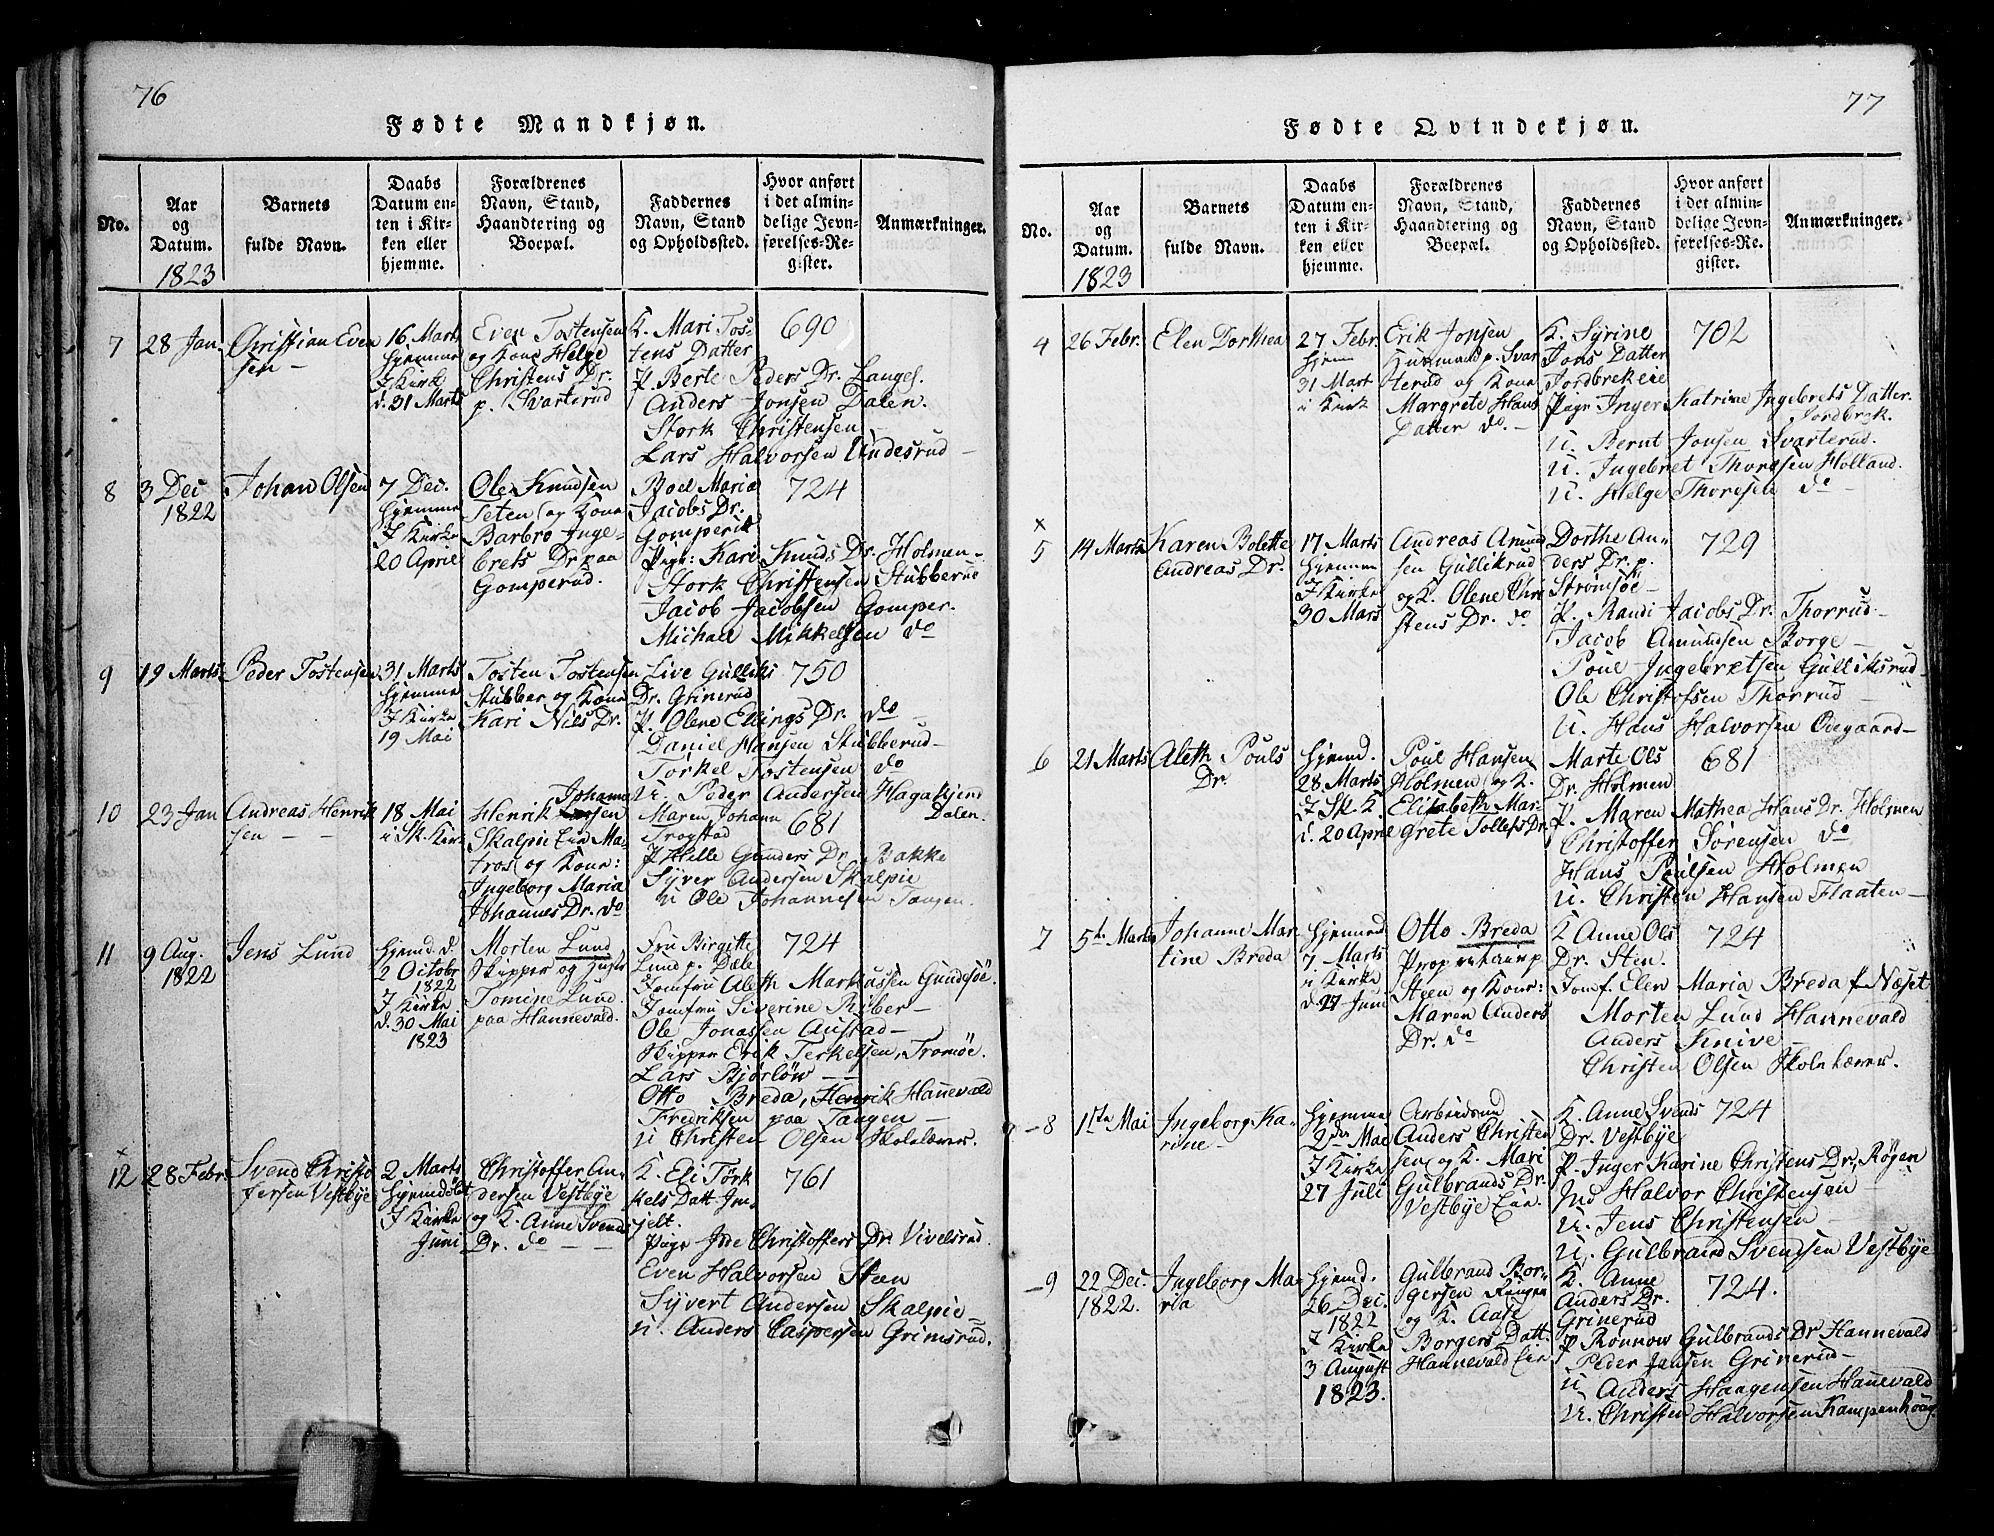 76
Fødte Mandkjøn.
No.
Aar
og
Datum.
1823
Barnets
fulde Navn.
Daabs
Datum en-
ten i Kir-
ken eller
hjemme.
Forældrenes
Navn, Stand,
Haandtering og
Boepæl.
Faddernes
Navn, Stand
og Opholdssted.
Hvor anført
i det almin-
delige Jevn-
førelses-Re-
gister.
Anmærkninger.
7
28 Jan
Christian Even
sen –
16 Marts
hjemme
I Kirk
d. 31 Marts
Even Tostensen
og Kone Helge
Christens Dr.
p. Svarterud
K. Mari Tos-
tens Datter
P. Berte Peders Dr. Langes.
Anders Jonsen Dalen.
Stork Christensen –
Lars Halvorsen Undesrud –
690
8
3 Dec
1822
Johan Olsen
7 Dec.
hjemme
I Kirke
20 April
Ole Knudsen
Seten og Kone
Barbro Inge-
brets Dr paa
Gomperud.
Boel Maria
Jacobs Dr.
Gomperud
Pige: Kari Knuds Dr. Holmen –
Stork Christensen Stubberud
Jacob Jacobsen Gomper.
Michael Mikkelsen do
724
9
19 Marts
Peder Tostensen
31 Marts
hjemme
I Kirke
19 Mai
Tosten Tostensen
Stubber og Kone
Kari Nils Dr.
Live Gulliks
Dr. Grinerud
P. Olene Ellings Dr. do
Daniel Hansen Stubberud –
Torkel Tostensen do
U. Peder Andersen Hagakjens
Dalen.
750
10
23 Jan
Andreas Henrik
sen – –
18 Mai
i Sk. Kirk
Johanne
Henrik sen
Skalpie Eie Ma-
tros og Kone:
Ingeborg Maria
Johannes Dr. do
Maren Johann
Trogstad
P. Helle Gunders Dr. Bakke
Syver Andersen Skalpie
U Ole Johannesen Tangen.
681
11
9 Aug.
1822
Jens Lund
Hjemd. d.
2 Octobr
1822
I Kirke
d. 30 Mai
1823
Morten Lund
Skipper og Hust:
Tomine Lund
paa Hannevald.
Fru Birgitte
Lund p. Dæle
Jomfru Aleth Markussen Gundsöe.
Jomfru Siverine Röber –
Ole Jonassen Austad –
Skipper Erik Terkelsen, Tromöe.
Lars Bjórlöw – –
Otto Breda, Henrik Hanevald
Fredriksen paa Tangen –
U Christen Olsen Skolelærer.
724
×
12
28 Febr
Svend Christo
fersen Vestbye
2 Marts
hjemdöbt
I Kirke
Juni
Christoffer An-
dersen Vestbye
og K. Anne Svends
Dr. do – –
K. Eli Törk
kels Datt. Jon
jelt.
Pige Ine Christoffers Dr. Vivelsrud.
Even Halvorsen Steen
Syvert Andersen Skalpie –
U. Anders Caspersen Grimsrud.
761
77
Fødte Qvindekjøn.
No.
Aar
og
Datum.
1823
Barnets
fulde Navn.
Daabs
Datum en-
ten i Kir-
ken eller
hjemme.
Forældrenes
Navn, Stand,
Haandtering og
Boepæl.
Faddernes
Navn, Stand
og Opholdssted.
Hvor anført
i det almin-
delige Jevn-
førelses-Re-
gister.
Anmærkninger.
4
26 Febr.
Elen Dorthea
27 Febr.
hjem
31 Mart
i Kirk
Erik Jonsen
Huusmand p. Svar
terud og Kone
Margrete Hans
Datter do. –
K. Syrine
Jons Datter
Jordbrekeie
Pige Inger Katrine Ingebrets Datter.
Jordbrek.
U. Bernt Jonsen Svarterud.
U. Ingebret Thoresen Holland.
U. Helge Thoresen do –
702
×
5
14 Marts
Karen Bolette
Andreas Dr.
17 Marts
hjemme
I Kirke
30 Mars
Andreas Amund
sen Gulliksrud
og K. Olene Chri
stens Dr. do
Dorthe An-
ders Dr. p.
Strömsöe –
P. Randi Jacobs Dr. Thorrud –
Jacob Amundsen Borge –
Poul Ingebretsen Gulliksrud
Ole Christofsen Thorrud –
U. Hans Halvorsen Odegaard –
729
6
21 Marts
Aleth Pouls
Dr.
hjemd.
28 Marts
I Sk. K.
d. 20 April
Poul Hansen
Holmen og K.
Elisabeth Mar-
grete Tollefs Dr.
Marte Ols
Dr. Holmen
P. Maren Mathea Hans Dr. Holmen
Christoffer Sörensen do
Hans Poulsen Holmen
U. Christen Hansen Flaaten –
681
7
5te Marts
Johanne Mar-
tine Breda
hjemme
7 Marts
i Kirke
d. 27 Juni
Otto Breda
Proprietair p
Steen og Kone:
Maren Anders
Dr. do
K Anne Ols
Dr. Sten.
Jomf. Elen Maria Breda f Næset
Morten Lund Hannevald
Anders Knive –
Christen Olsen Skolelærer.
724
– 8
1ste Mai
Ingeborg Ka-
rine –
hjemme
2den Mae
I Kirke
27 Juli
Arbeidsmd
Anders Christen
sen og K. Mari
Gulbrands Dr.
Vestbye Eie.
K. Anne Svends
Dr. Vestbye
P. Inger Karine Christens Dr, Røgen
Ind Halvor Christensen –
U. Jens Christensen –
U. Gulbrand Svendsen Vestbye
724
– 9
22 Dec.
1822.
Ingeborg Ma-
ria
hjemd.
26 Dec.
1822
I Kirke
3 August
1823.
Gulbrand Bor-
gersen Ringen
og K. Aase
Borgers Datt.
Hannevald Eie
K. Anne
Anders Dr.
Grinerud
P Rönnow Gulbrands Dr Hannevald
Peder Jensen Grinerud –
U Anders Haagensen Hanevald
U. Christen Halvorsen Kampenhaug
724.